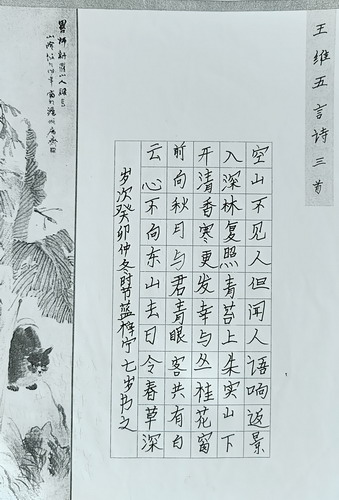 王维五言诗三首
空山不见人但闻人语响返景
入深林复照青苔上朱实山下
开清香寒更发幸与丛桂花窗
前向秋月与君青眼客共有白
云心不向东山去日令春草深
岁次癸卯仲冬时节蓝梓宁七岁书之
新羅山人